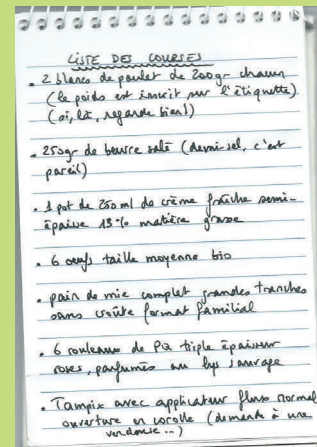 LISTE DES COURSES
• 2 blancs de poulet de 200gr chacun
(le poids est inscrit sur l'étiquette)
(si, là, regarde bien!)
• 250gr de beurre salé (demi-sel, c'est
pareil)
• 1 pot de 250 ml de crème fraîche semi-
épaisse 15% matière grasse
• 6 oeufs taille moyenne bio
• pain de mie complet grandes tranches
sans croûte format familial
• 6 rouleaux de PQ triple épaisseur
roses, parfumés au lys sauvage
• Tampax avec applicateur fluxo normal
ouverture en corolle (demande à une
vendeuse...)